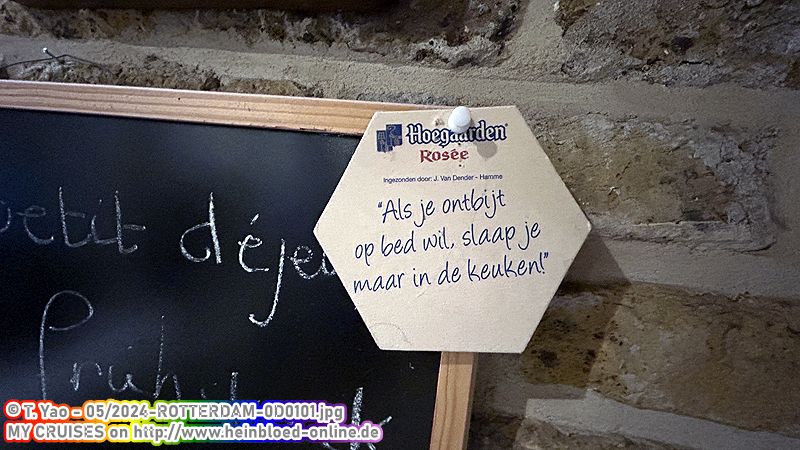 Hoegaarden®
Rosée
Ingezonden door: J. Van Dender - Hamme
"Als je ontbijt
op bed wil, slaap je
maar in de keuken!"
petit déjeu
Früh k
© T. Yao - 05/2024-ROTTERDAM-0D0101.jpg
MY CRUISES on http://www.heinbloed-online.de